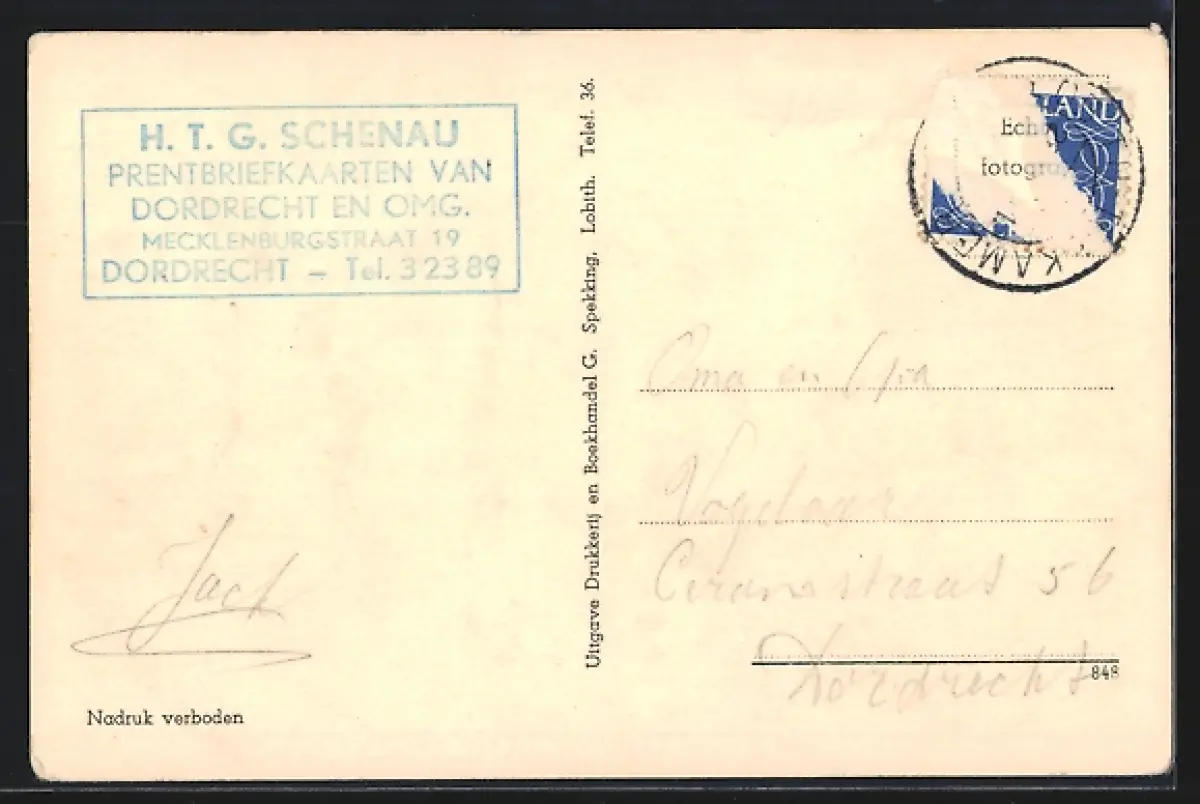 H. T. G. SCHENAU
PRENTBRIEFKAARTEN VAN
DORDRECHT EN OMG.
MECKLENBURGSTRAAT 19
DORDRECHT – Tel. 3 23 89
Jack
Nadruk verboden
Uitgave Drukkerij en Boekhandel G. Spekking, Lobith. Telef. 36.
LAND
Echt
fotogra
KAMP
Oma en Opa
Vogelaar
Ceramstraat 56
Dordrecht
848